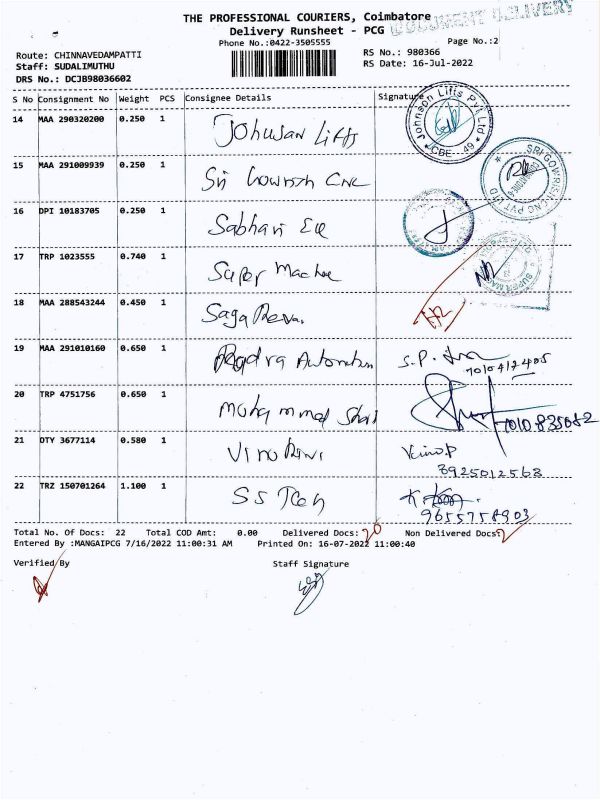 THE PROFESSIONAL COURIERS, Coimbatore
DOCUMENT DELIVERY
Delivery Runsheet - PCG
Phone No.:0422-3505555
Page No.:2
Route: CHINNAVEDAMPATTI
RS No.: 980366
Staff: SUDALIMUTHU
RS Date: 16-Jul-2022
DRS No.: DCJB98036602
S No Consignment No Weight PCS Consignee Details Signature
14 MAA 290320200 0.250 1 Johnson Lifts
Johnson Lifts Pvt Ltd * CBE - 49 *
15 MAA 291009939 0.250 1 Sri Gowrish CNC
SRI GOWRISH CNC PVT LTD
16 DPI 10183705 0.250 1 Sabhari
17 TRP 1023555 0.740 1 Super Machine
SUPER
18 MAA 288543244 0.450 1 Saga
19 MAA 291010160 0.650 1 Automation S.P.
7010412405
20 TRP 4751756 0.650 1 Mohammed
7010835082
21 DTY 3677114 0.580 1 Vino
8925012568
22 TRZ 150701264 1.100 1 SS Tech
9655758903
Total No. Of Docs: 22 Total COD Amt: 0.00 Delivered Docs: 20 Non Delivered Docs: 2
Entered By :MANGAIPCG 7/16/2022 11:00:31 AM Printed On: 16-07-2022 11:00:40
Verified By Staff Signature